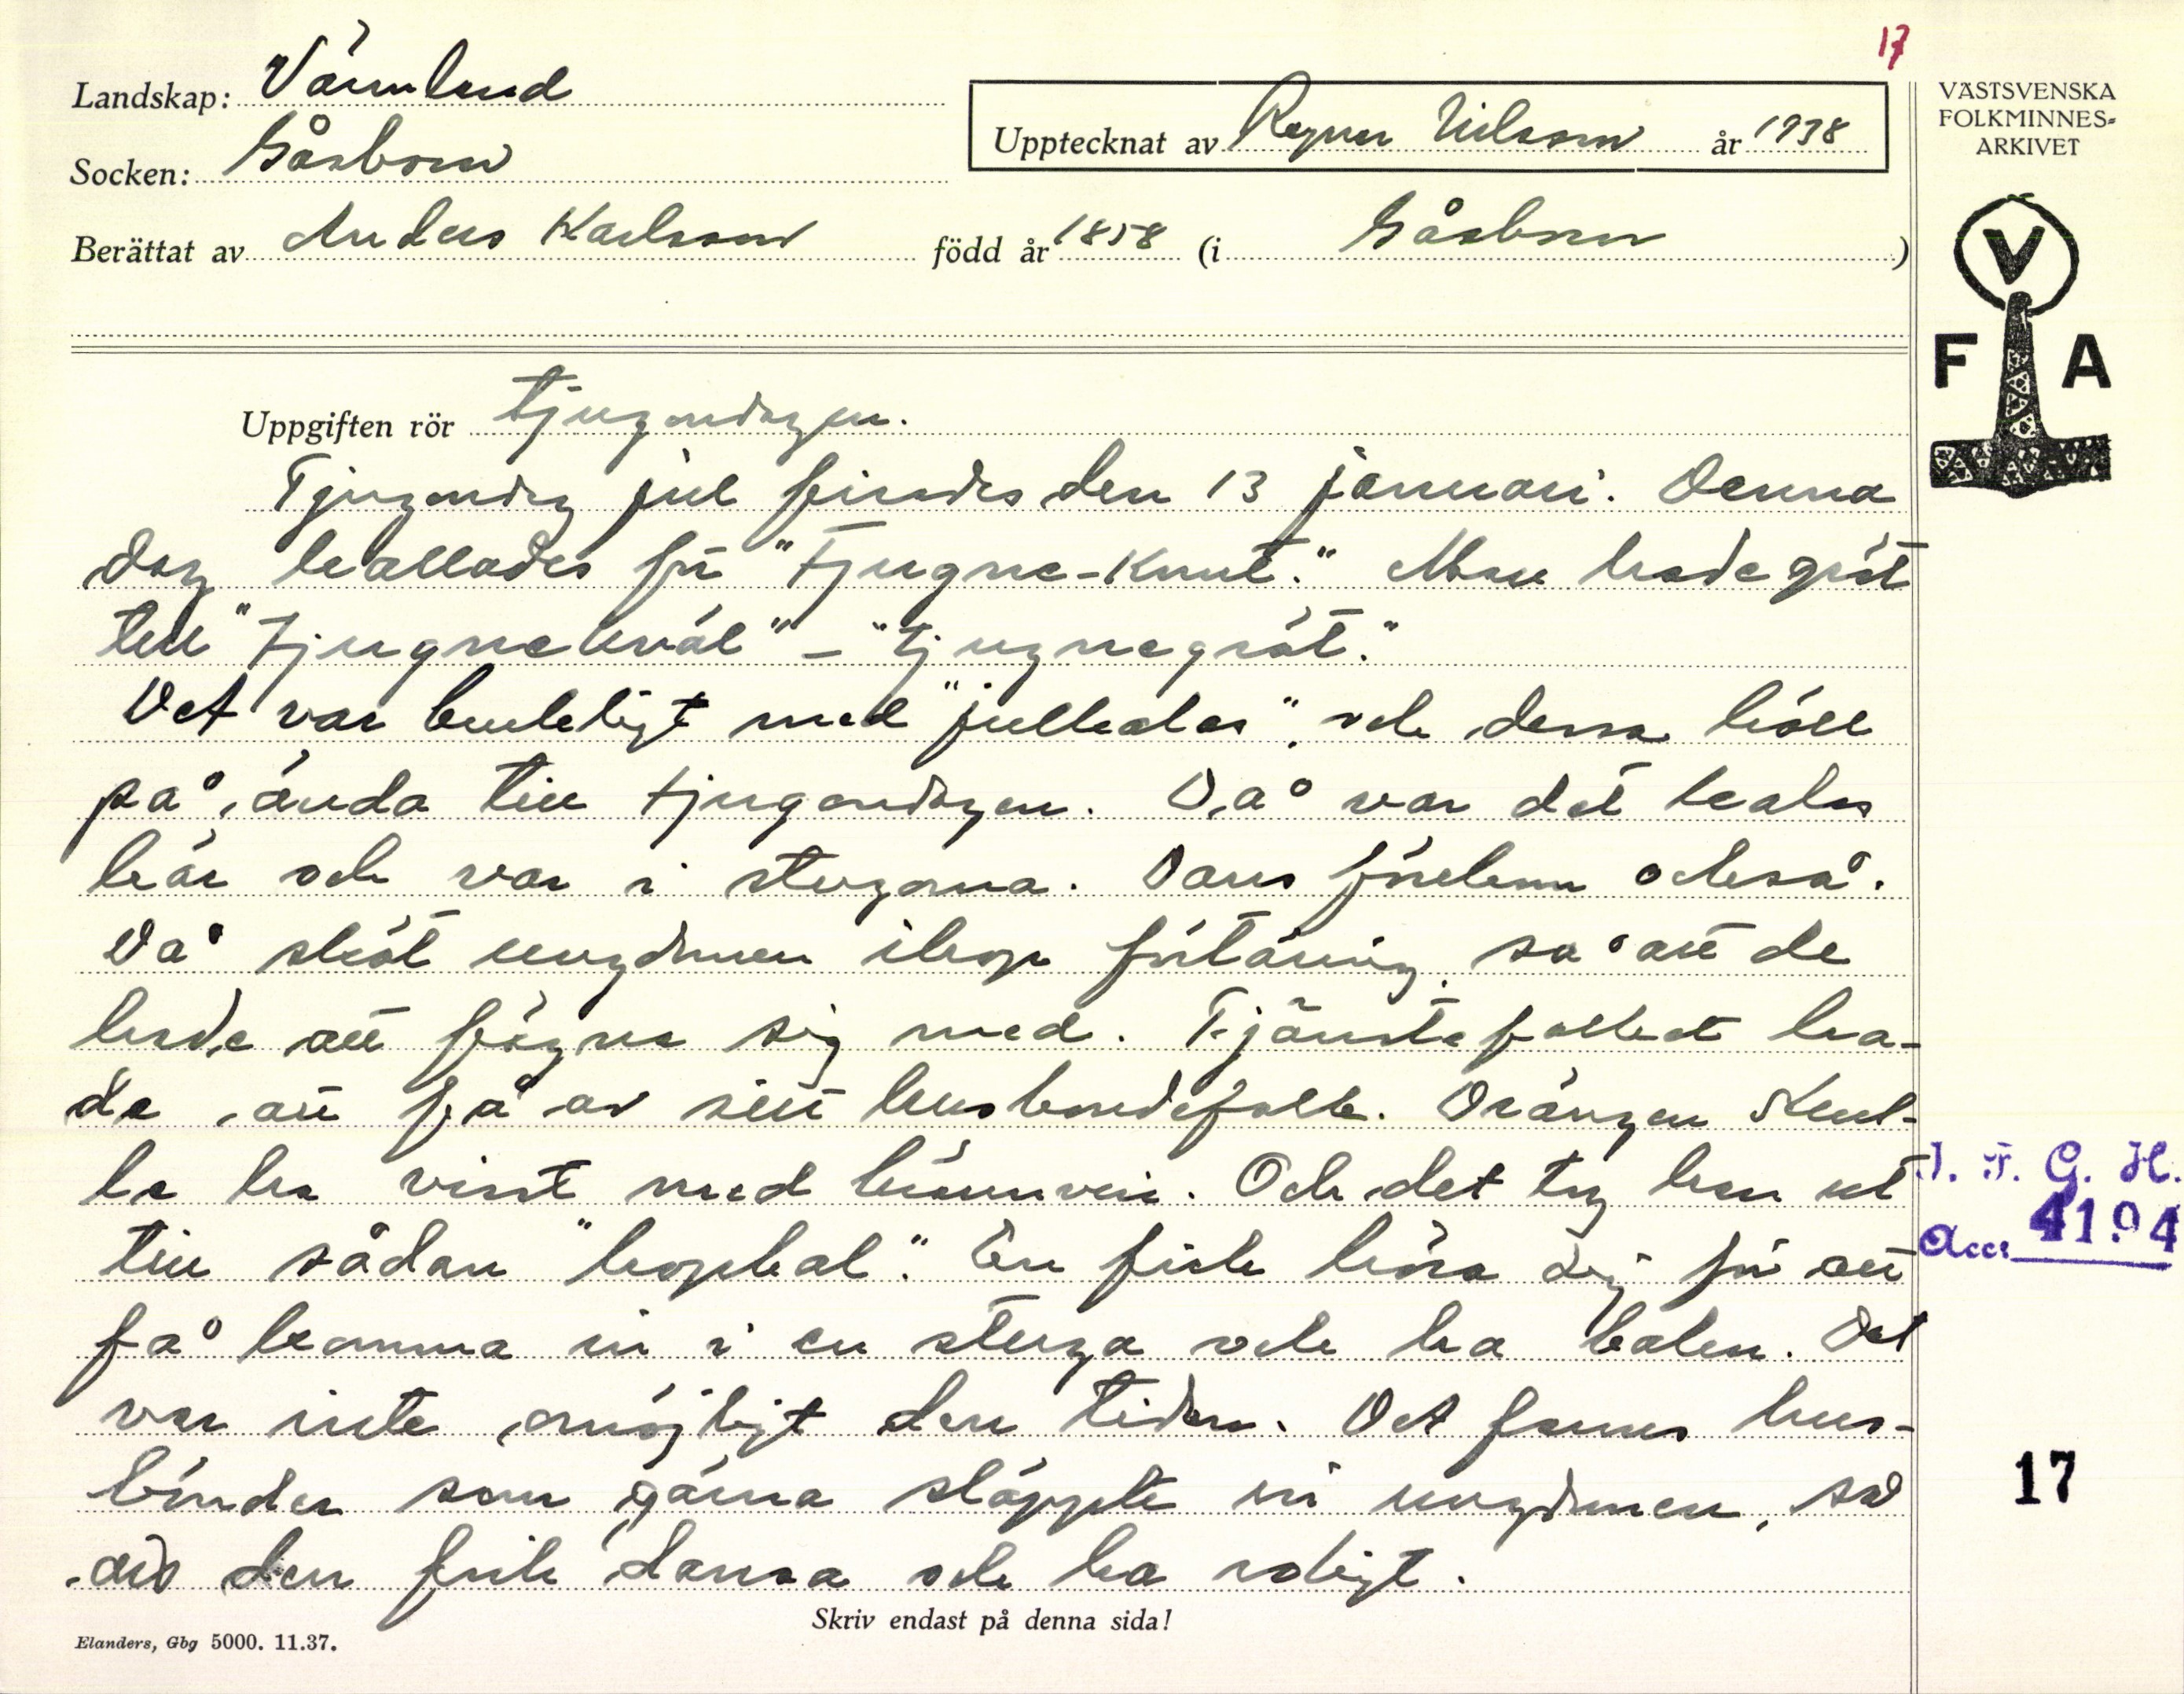 17
Landskap: Värmland
Socken: Gåsborn
Upptecknat av Ragnar Nilsson år 1938
Berättat av Anders Karlsson född år 1858 (i Gåsborn)
VÄSTSVENSKA
FOLKMINNES-
ARKIVET
V
F A
Uppgiften rör tjugondagen.
Tjugondag jul firades den 13 januari. Denna
dag kallades för "Tjugne-Knut." Man hade gröt
till "Tjugnekväl" - "tjugnegröt."
Det var livligt med "julkalas", och dessa höll
på ända till tjugondagen. Då var det kalas
här och var i stugorna. Dans förekom också.
Då sköt ungdomen ihop förtäring, så att de
hade att fägna sig med. Tjänstefolket ha-
de att få av sitt husbondefolk. Drängen skul-
le ha visst med brännvin. Och det tog han ut
till sådan "hopkal". En fick höra sig för att
få komma in i en stuga och ha balen. Det
var inte omöjligt den tiden. Det fanns hus-
bönder som gärna släppte in ungdomen, så
att den fick dansa och ha roligt.
I. F. G. H.
Acc: 4194
17
Skriv endast på denna sida!
Elanders, Gbg 5000. 11.37.